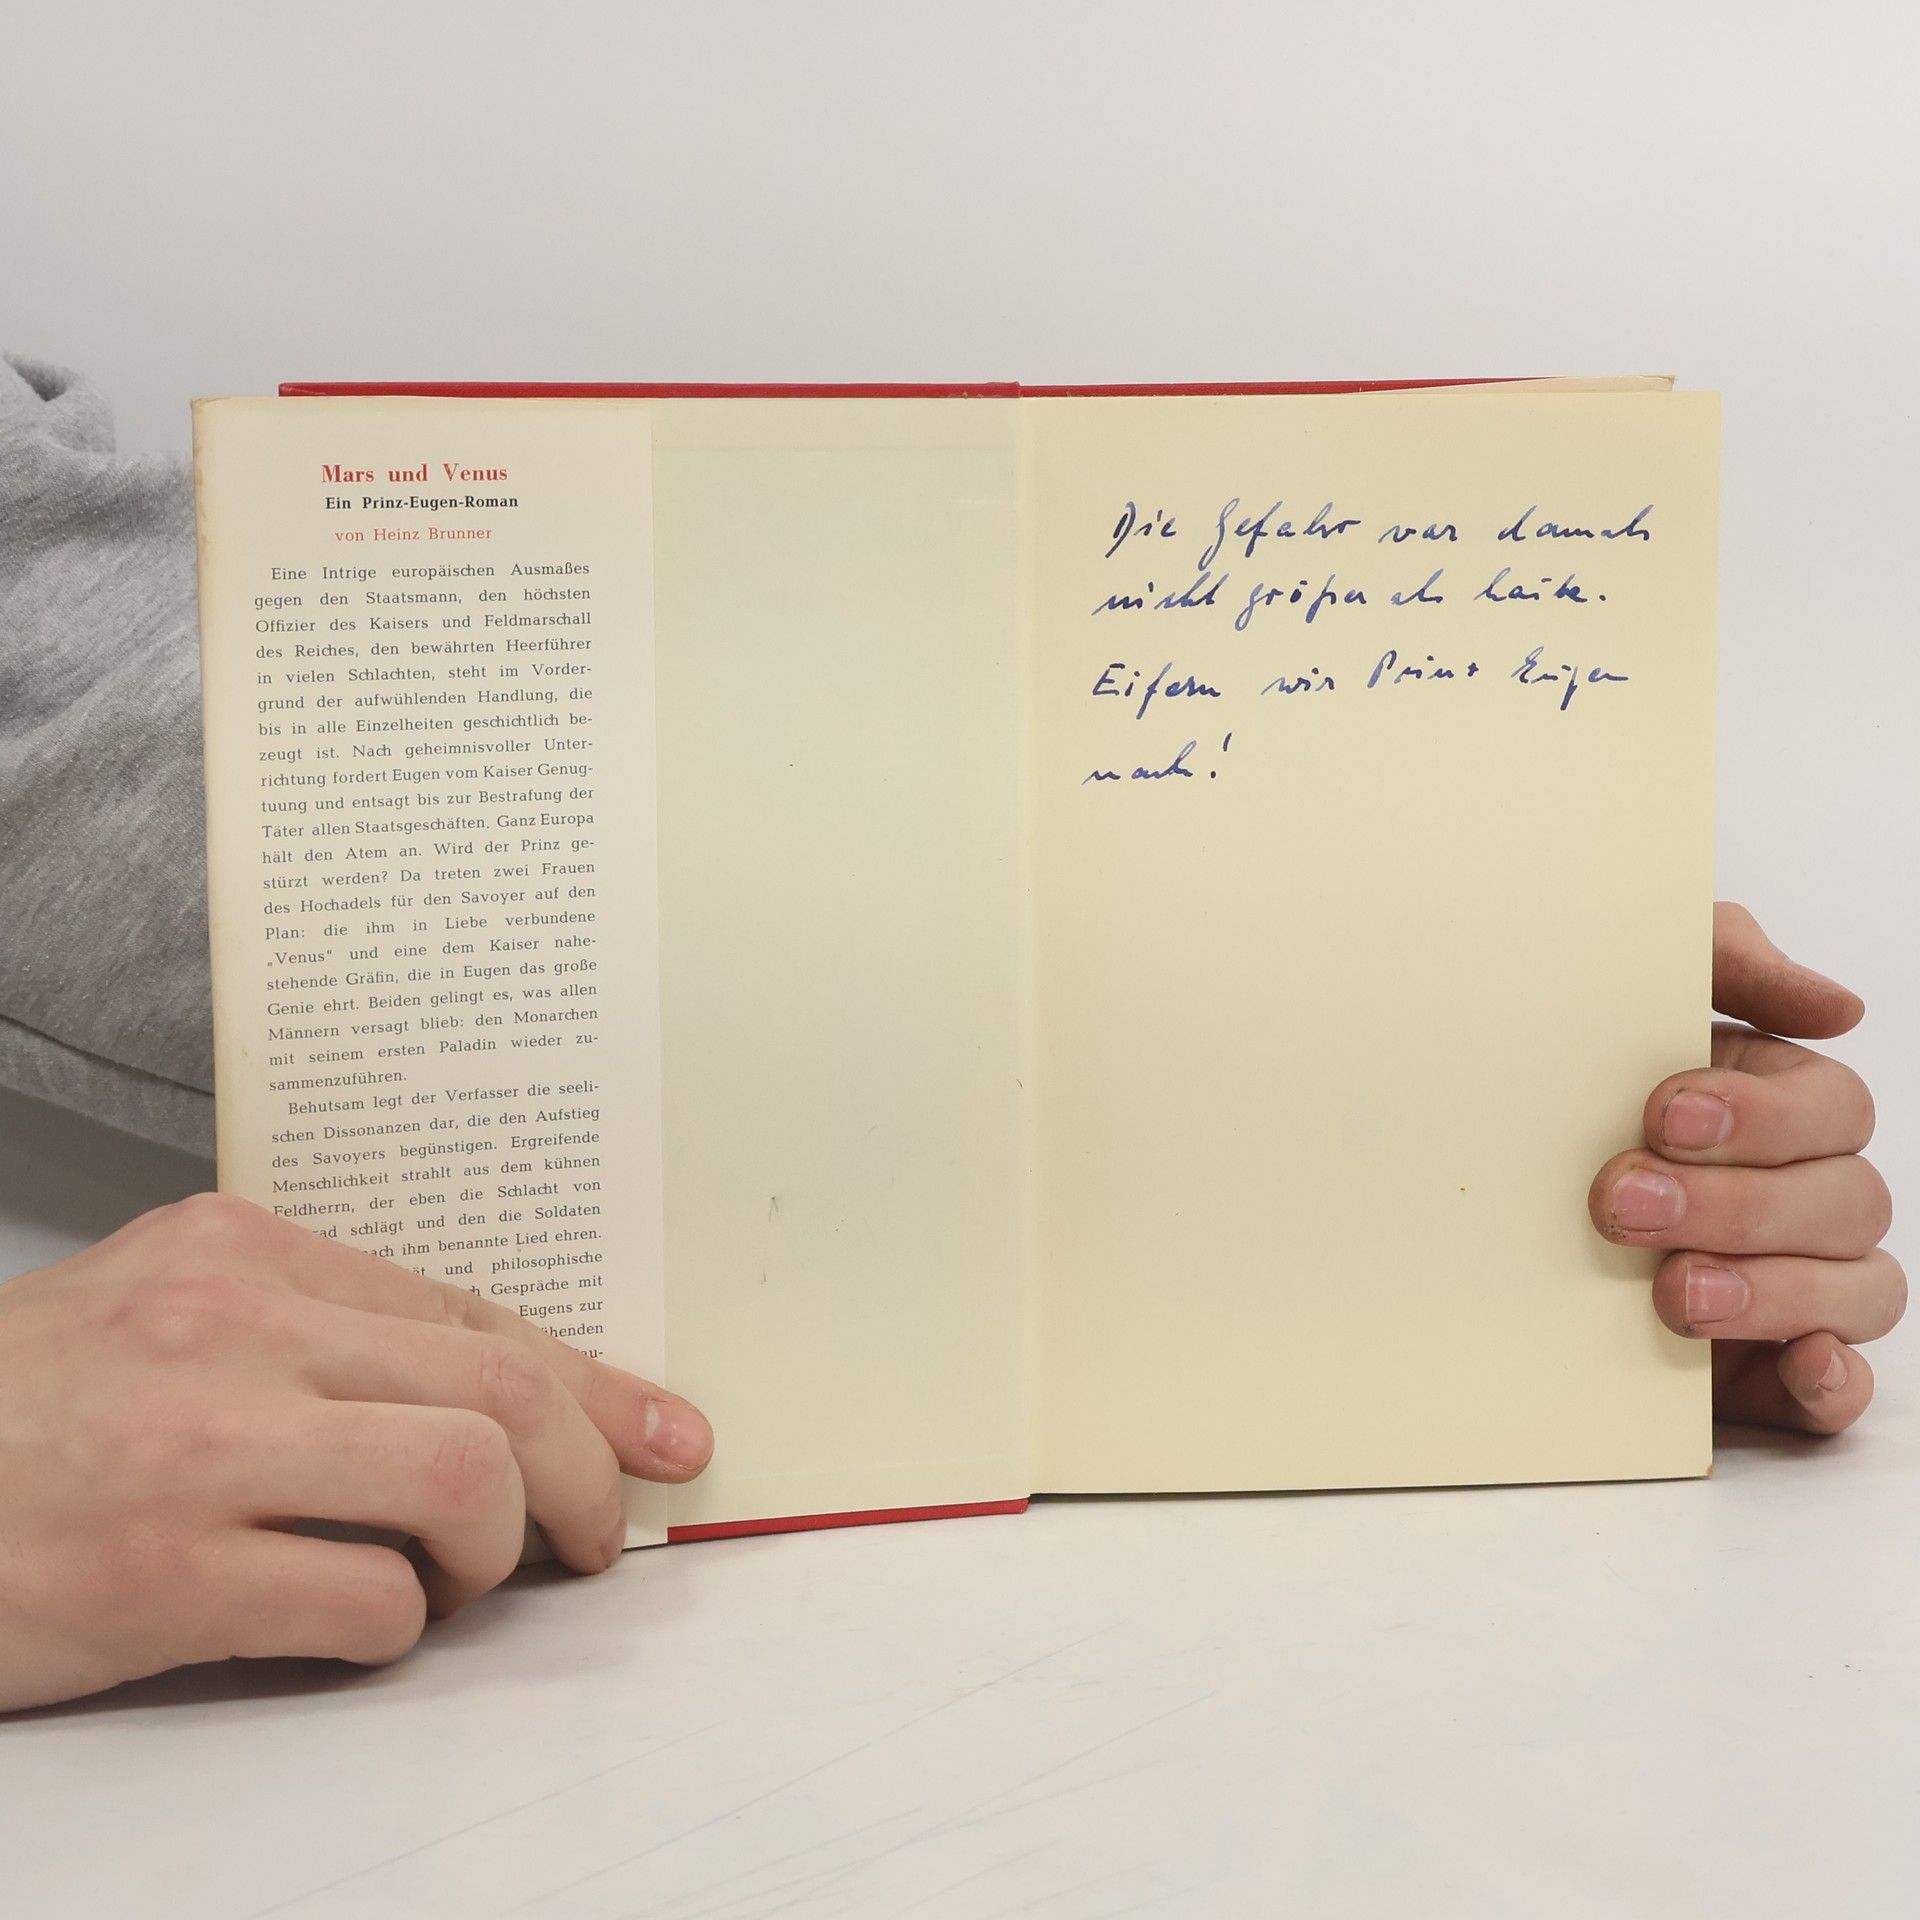 Mars und Venus
Ein Prinz-Eugen-Roman
von Heinz Brunner
Eine Intrige europäischen Ausmaßes
gegen den Staatsmann, den höchsten
Offizier des Kaisers und Feldmarschall
des Reiches, den bewährten Heerführer
in vielen Schlachten, steht im Vorder-
grund der aufwühlenden Handlung, die
bis in alle Einzelheiten geschichtlich be-
zeugt ist. Nach geheimnisvoller Unter-
richtung fordert Eugen vom Kaiser Genug-
tuung und entsagt bis zur Bestrafung der
Täter allen Staatsgeschäften. Ganz Europa
hält den Atem an. Wird der Prinz ge-
stürzt werden? Da treten zwei Frauen
des Hochadels für den Savoyer auf den
Plan: die ihm in Liebe verbundene
„Venus“ und eine dem Kaiser nahe-
stehende Gräfin, die in Eugen das große
Genie ehrt. Beiden gelingt es, was allen
Männern versagt blieb: den Monarchen
mit seinem ersten Paladin wieder zu-
sammenzuführen.
Behutsam legt der Verfasser die seeli-
schen Dissonanzen dar, die den Aufstieg
des Savoyers begünstigen. Ergreifende
Menschlichkeit strahlt aus dem kühnen
Feldherrn, der eben die Schlacht von
schlägt und den die Soldaten
nach ihm benannte Lied ehren.
und philosophische
Gespräche mit
Eugens zur
Die Gefahr war damals
nicht größer als heute.
Eifern wir Prinz Eugen
nach!